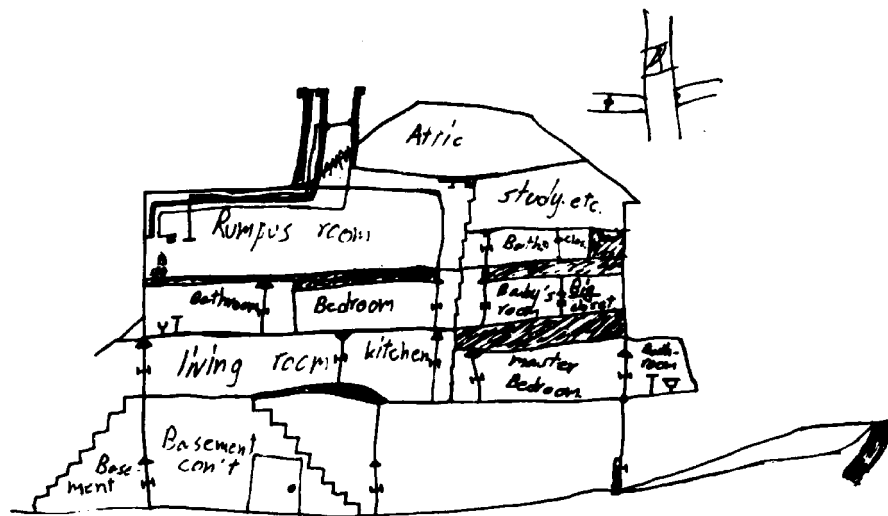 Attic
study. etc.
Rumpus room
Bath
clos.
Bathroom
Bedroom
Baby's
room
Big
closet
living room
kitchen
master
Bedroom
Bath-
room
Base-
ment
Basement
con't